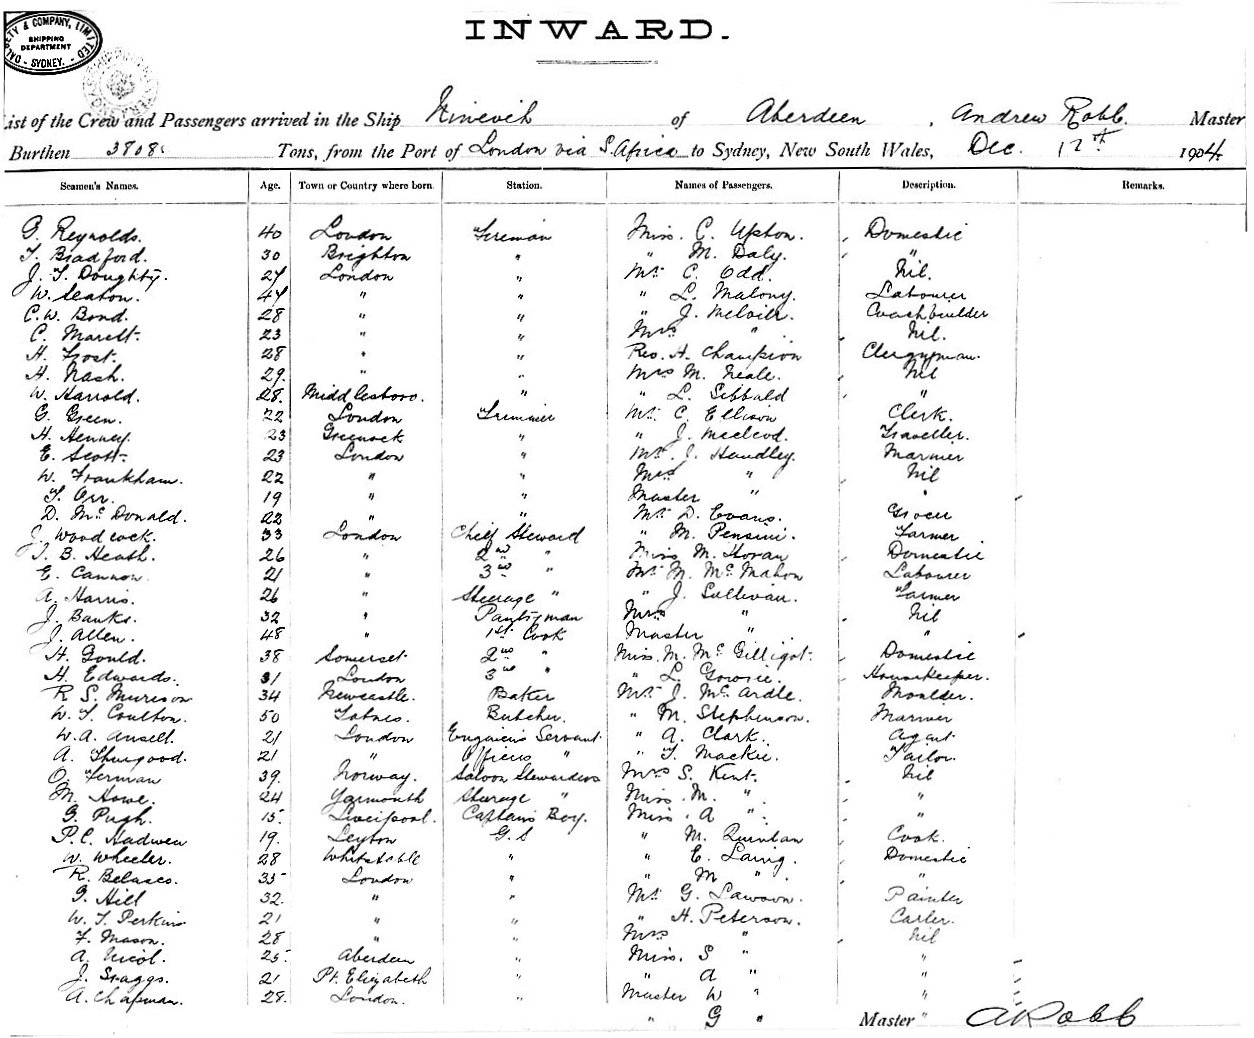 DALGETY & COMPANY, LIMITED
SHIPPING
DEPARTMENT
SYDNEY.
INWARD.
List of the Crew and Passengers arrived in the Ship Nineveh of Aberdeen, Andrew Robb. Master
Burthen 3808 Tons, from the Port of London via S. Africa to Sydney, New South Wales, Dec. 12th 1904.
Seamen's Names. Age. Town or Country where born. Station. Names of Passengers. Description. Remarks.
G. Reynolds. 40 London Fireman Miss. C. Upton. Domestic
T. Bradford. 30 Brighton " " M. Daly. "
J. T. Doughty. 27 London " Mr. C. Odd. Nil.
W. Seaton. 47 " " " L. Malony. Labourer
C. W. Bond. 28 " " " J. Coachbuilder
C. Marett. 23 " " Mrs " Nil.
H. Frost. 28 " " Rev. H. Champion Clergyman.
H. Nash. 29. " " Mrs M. Neale. Nil
W. Harrold. 28. Middlesboro. " " L. Sibbald "
G. Green. 22 London Trimmer Mr. C. Ellison Clerk.
H. Henney. 23 Greenock " " J. McLeod. Traveller.
E. Scott. 23 London " Mr. J. Handley. Mariner
W. Frankham. 22 " " Mrs " Nil
T. Orr. 19 " " Master " "
D. McDonald. 22 " " Mr. D. Evans. Grocer
J. Woodcock. 33 London Chief Steward " M. Pensini. Farmer
T. B. Heath. 26 " 2nd " Miss M. Horan Domestic
E. Cannon. 21 " 3rd " Mr. M. McMahon Labourer
A. Harris. 26 " Steerage " " J. Sullivan. Farmer
J. Banks. 32 " Pantryman Mrs " Nil
J. Allen. 48 " 1st Cook Master " "
H. Gould. 38 Somerset 2nd " Miss. M. McGilligot. Domestic
H. Edwards. 31 London 3rd " " L. Gowrie. Housekeeper.
R. S. Murison 34 Newcastle. Baker Mr. J. McArdle. Moulder.
W. T. Coulton. 50 Totnes. Butcher. " M. Stephenson. Mariner
W. A. Ansell. 21 London Engineers Servant " A. Clark. Agent
A. Thurgood. 21 " Officers " " T. Mackie. Tailor.
O. Ferman 39. Norway. Saloon Stewardess Mrs S. Kent. Nil
M. Howe. 24 Yarmouth Steerage " Miss. M. " "
G. Pugh. 15. Liverpool. Captains Boy. Miss. A " "
P. C. Hadwen 19. Leyton G.S " M. Quinlan Cook.
W. Wheeler. 28 Whitstable " " E. Laing. Domestic
R. Belasco. 35 London " " M " "
G. Hill 32. " " Mr. G. Lawson. Painter
W. T. Perkins 21 " " " H. Peterson. Carter.
F. Mason. 28 " " Mrs " Nil
A. Nicol. 25. Aberdeen " Miss. S " "
J. Scaggs. 21 Pt. Elizabeth " " A " "
A. Chapman. 28. London. " Master W " "
" G " Master " A Robb